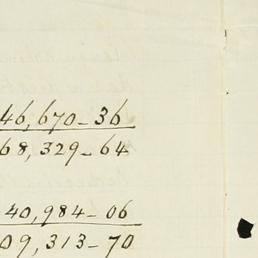 46,670-36
68,329-64
40,984-06
09,313-70